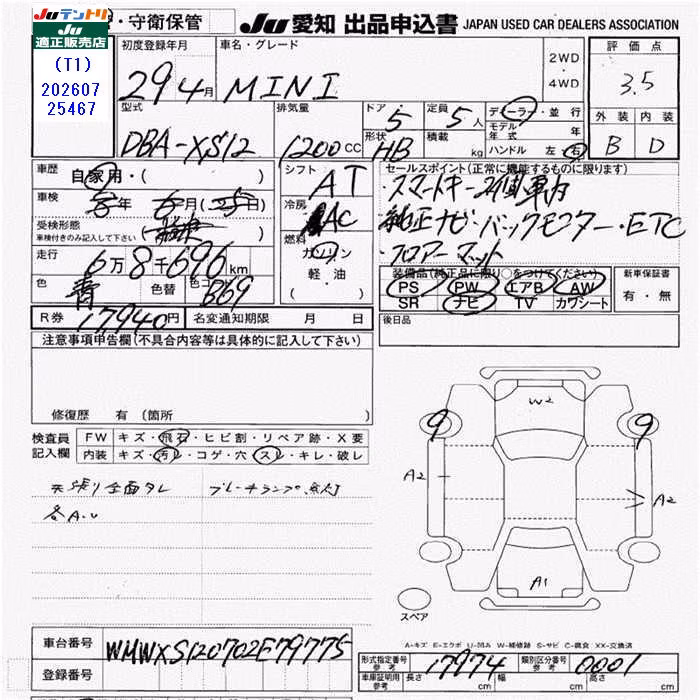 JUテントリ
適正販売店
(T1)
202607
25467
・守衛保管
JU 愛知 出品申込書 JAPAN USED CAR DEALERS ASSOCIATION
初度登録年月 車名・グレード 2WD・4WD 評価点
29 4月 MINI 3.5
型式 排気量 ドア・形状 定員 積載
DBA-XS12 1200CC 5 HB 5人 kg
ディーラー・並行
モデル年式 年
ハンドル 左・右
外装 内装
B D
車歴 自家用・( )
車検 8年 6月(25日)
受検形態
車検付きのみ記入して下さい
走行 6万8千696km
色 青 色替 色コ B69
R券 17940円 名変通知期限 月 日
シフト AT
冷房 AC
燃料 ガソリン
軽・油
( )
セールスポイント(正常に機能するものに限ります)
・スマートキー2個
純正ナビ・バックモニター・ETC
・フロアーマット
装備品(純正品に限り○をつけてください)
PS PW エアB AW
SR ナビ TV カワシート
新車保証書
有・無
後日品
注意事項申告欄(不具合内容等は具体的に記入して下さい)
修復歴 有(箇所 )
検査員記入欄
FW キズ・飛石・ヒビ割・リペア跡・X要
内装 キズ・汚レ・コゲ・穴・スレ・キレ・破レ
天張り全面タレ ブレーキランプ点灯
各A.U
W2
9 9
A2 A2
A1
スペア
A-キズ E-エクボ U-凹み W-補修跡 S-サビ C-腐食 XX-交換済
車台番号 WMWXS120702E79775
登録番号
形式指定番号 参考 17974 類別区分番号 参考 0001
車庫証明用 参考 長さ cm 幅 cm 高さ cm